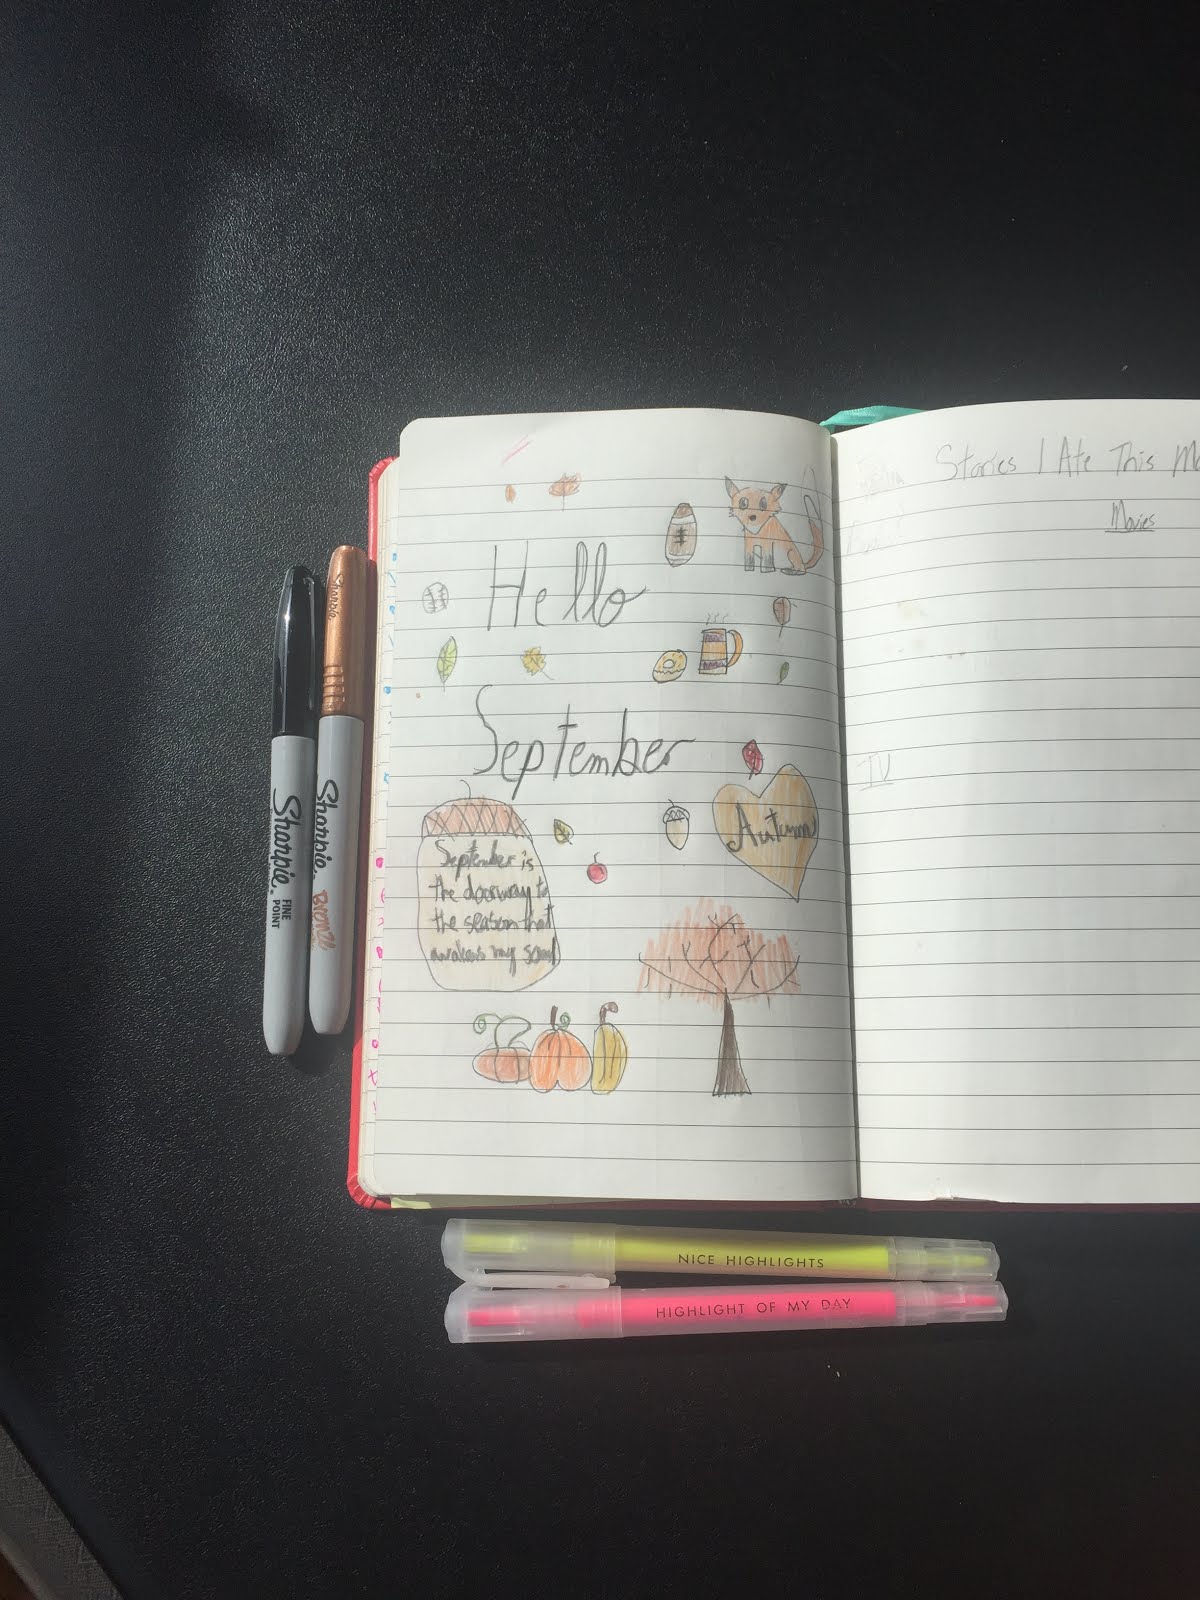 Hello
September
Autumn
September is
the doorway to
the season that
awakens my soul
Stories I Ate This Mo
Movies
TV
Sharpie.
FINE
POINT
Sharpie
Sharpie.
Bronze
NICE HIGHLIGHTS
HIGHLIGHT OF MY DAY